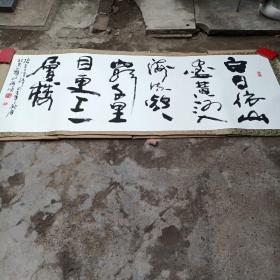 白日依山
盡黄河入
海流欲
窮千里
目更上一
層樓